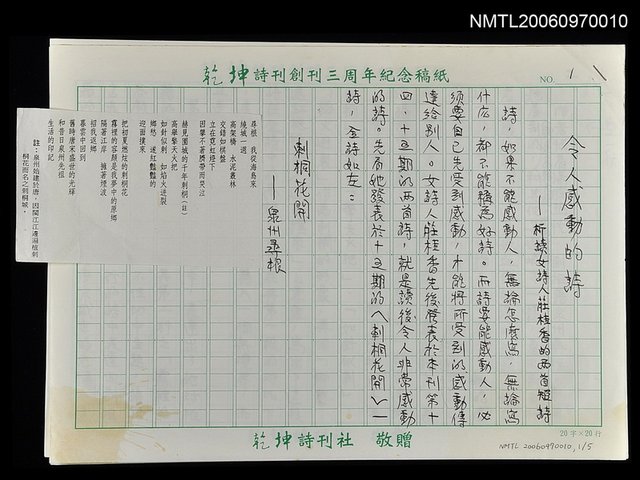 NMTL20060970010
乾坤詩刊創刊三周年紀念稿紙
NO. 1
令人感動的詩
—析讀女詩人莊桂香的兩首短詩
詩，如果不能感動人，無論怎麼寫，無論寫
什広，都不能稱為好詩。而詩要能感動人，必
須要自己先受到感動，才能將所受到的感動傳
達給別人。女詩人莊桂香先後發表於本刊第十
四、十五期的兩首詩，就是讀後令人非常感動
的詩。先看她發表於十五期的〈刺桐花開〉一
詩，全詩如左：
刺桐花開
—泉州尋根
尋根 我從海島來
繞城一週
高架橋 水泥叢林
交錯如棋盤
立在霓虹燈下
因攀不著臍帶而哭泣
赫見圍城的千年刺桐（註）
高舉擎天火把
如針似刺 如焰火迸裂
鄉愁 以逐紅豔豔的
迎面撲來
把初夏燃炫的刺桐花
霧裡的容顏是我夢中的原鄉
隔著江岸 擁著煙波
招我返鄉
暮雲中回到
舊時唐宋盛世的光輝
和昔日泉州先祖
生活的印記
註：泉州始建於唐，因閩江江邊遍植刺
桐花而名之刺桐城。
20字×20行
乾坤詩刊社 敬贈
NMTL 20060970010, 1/5